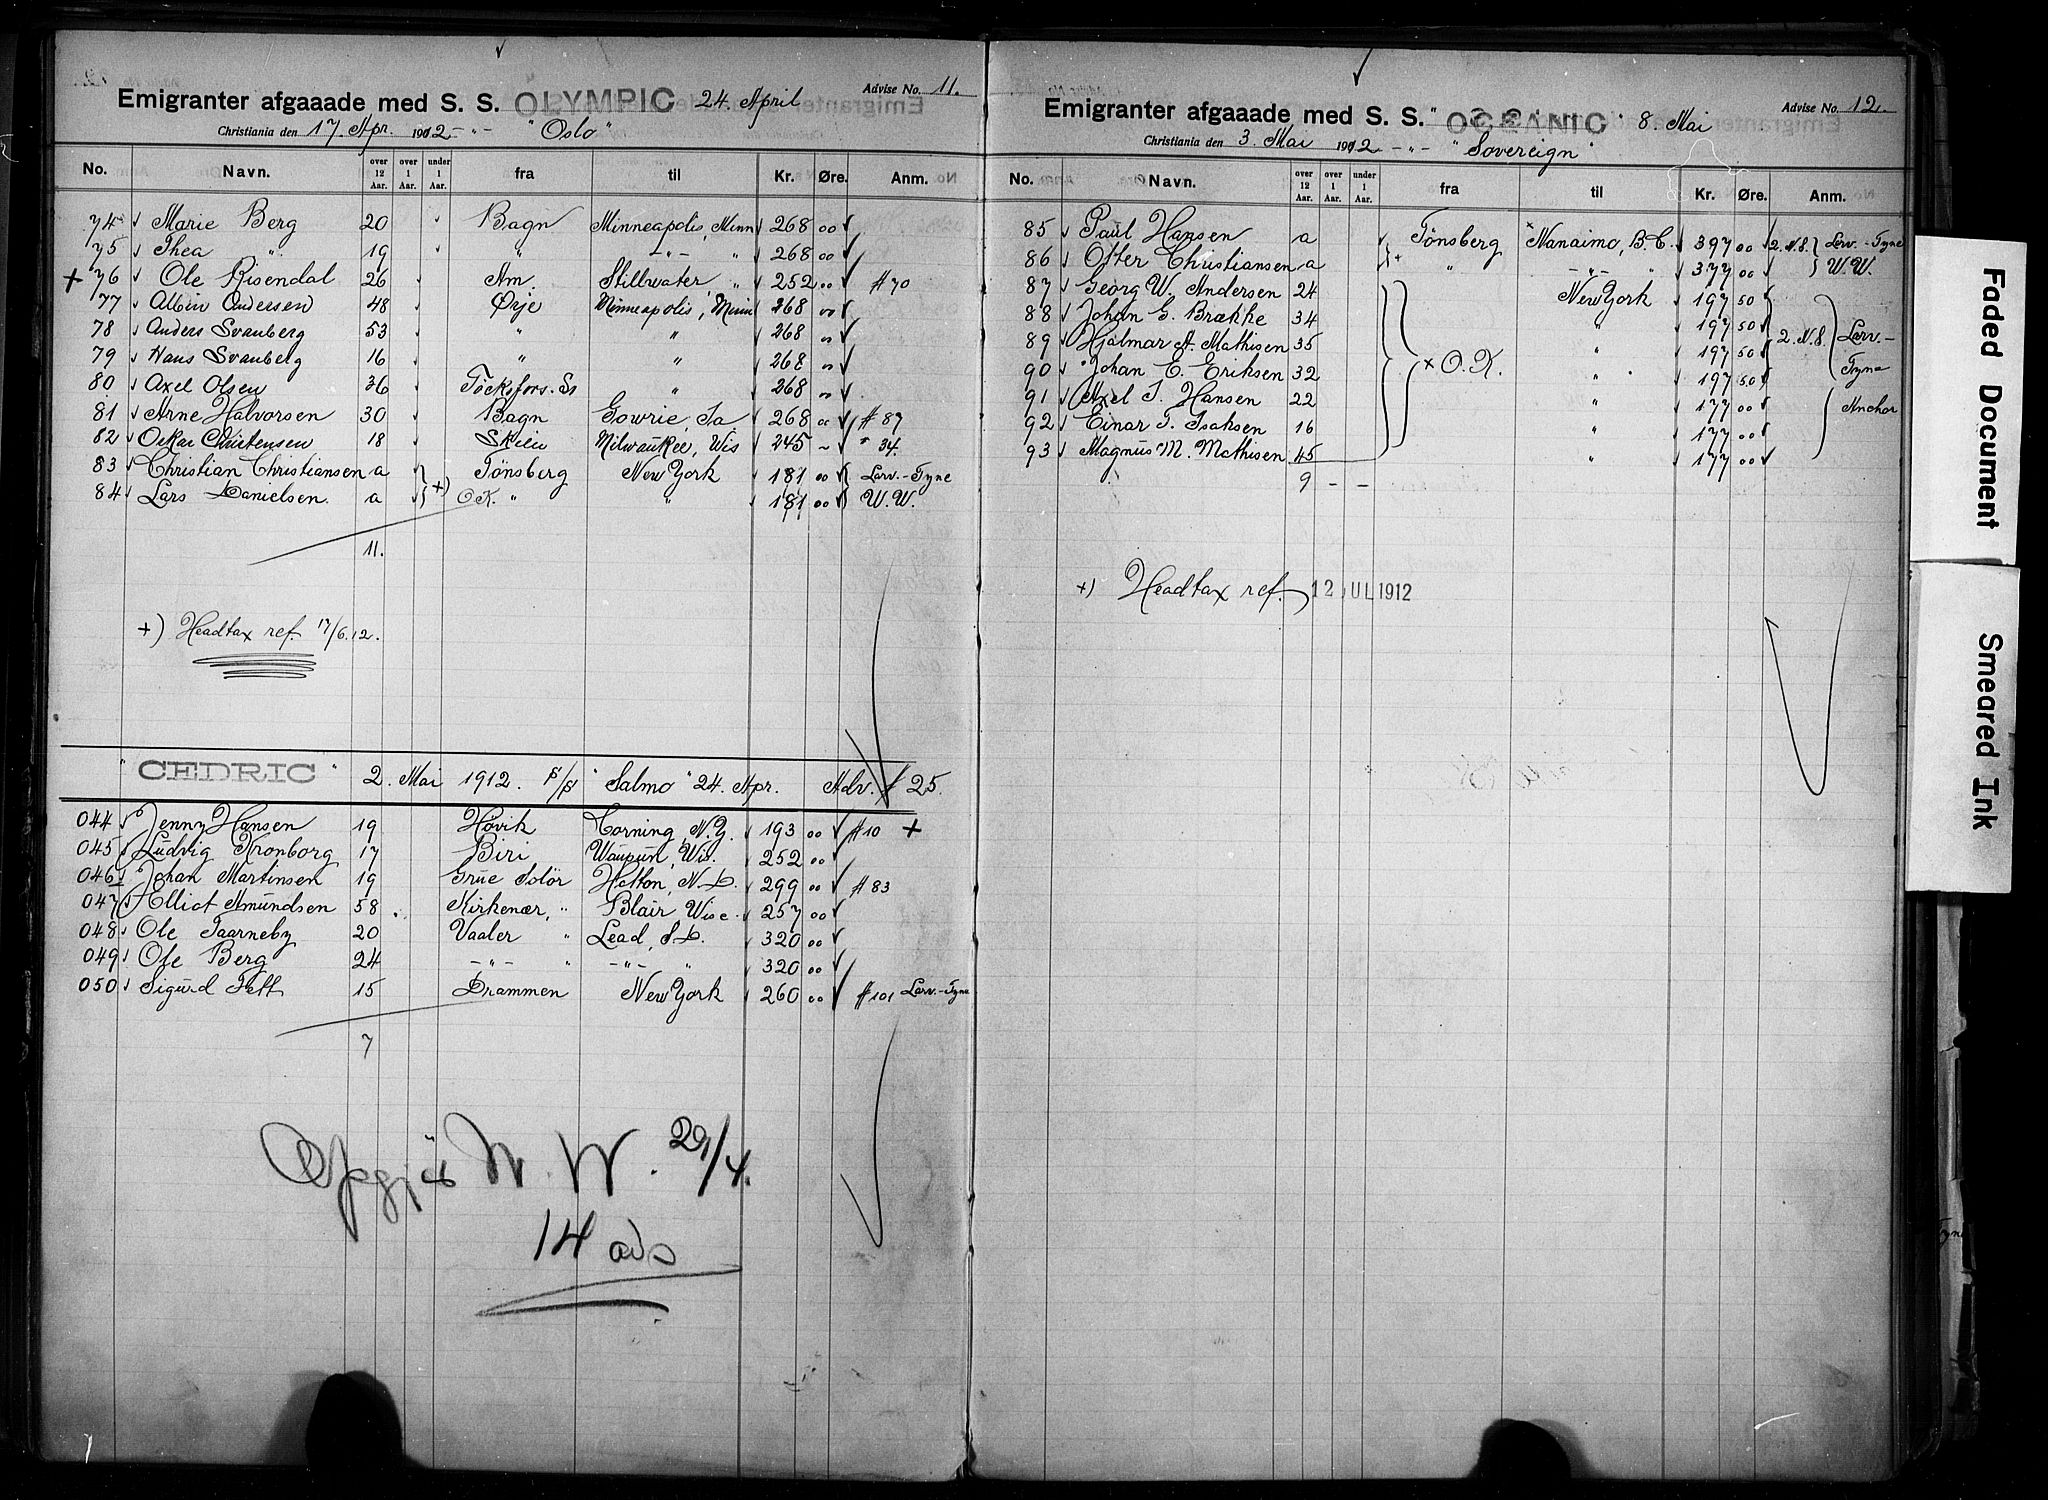 Emigranter afgaaade med S. S. OLYMPIC 24. April Advise No. 11.
Christiania den 17. Apr. 1912 -"- "Oslo"
No. Navn. over 12 Aar. over 1 Aar. under 1 Aar. fra til Kr. Øre. Anm.
74 Marie Berg 20 Bagn Minneapolis, Minn 268 00
75 Thea " 19 " -"- " 268 00
+ 76 Ole Risendal 26 Am. Stillwater " 252 00 # 70
77 Albin Andersen 48 Ørje Minneapolis, Minn 268 00
78 Anders Svanberg 53 " " 268 "
79 Hans Svanberg 16 " " 268 "
80 Axel Olsen 36 Töcksfors. Ss " 268 "
81 Arne Halvorsen 30 Bagn Gowrie, Ia 268 00 # 87
82 Oskar Christensen 18 Skien Milwaukee, Wis 245 - " 34.
83 Christian Christiansen a +) Tönsberg New York 181 00 Larv.-Tyne
84 Lars Danielsen. a O.K. " " 181 00 W. W.
11.
+) Headtax ref. 17/6.12.
"CEDRIC" 2. Mai 1912. p/p "Salmo" 24. Apr. Adv. # 25.
044 Jenny Hansen 19 Høvik Corning, N.Y. 193 00 #10 +
045 Ludvig Kronborg 17 Biri Waupun, Wis. 252 00
046 Johan Martinsen 19 Grue Solör Hatton, N.D. 299 00 # 83
047 Elliot Amundsen 58 Kirkenær, " Blair Wisc. 257 00
048 Ole Taarneby 20 Vaaler " Lead, S.D. 320 00
049 Ole Berg 24 -"- " -"- " 320 00
050 Sigurd Fett 15 Drammen New York 260 00 # 101 Larv.-Tyne
7
Opgjör W. W. 29/4.
14 ads
Emigranter afgaaade med S. S. "OCEANIC" 8. Mai Advise No. 12.
Christiania den 3. Mai 1912 -"- "Sovereign"
No. Navn. over 12 Aar. over 1 Aar. under 1 Aar. fra til Kr. Øre. Anm.
85 Paul Hansen a Tönsberg × Nanaimo, B.C. 397 00 2. N.S. Larv.-Tyne
86 Ofter Christiansen a + " -"- " 377 00 W. W.
87 Georg W. Andersen 24 New York 197 50
88 Johan G. Brække 34 " 197 50
89 Hjalmar A. Mathisen 35 " 197 50 2. N.S. Larv.-
90 Johan E. Eriksen 32 × O. K. " 197 50 Tyne
91 Axel T. Hansen 22 " 177 00 Anchor
92 Einar T. Isaksen 16 " 177 00
93 Magnus M. Mathisen 45 " 177 00
9 - -
+) Headtax ref. 12 JUL 1912
Faded Document
Smeared Ink